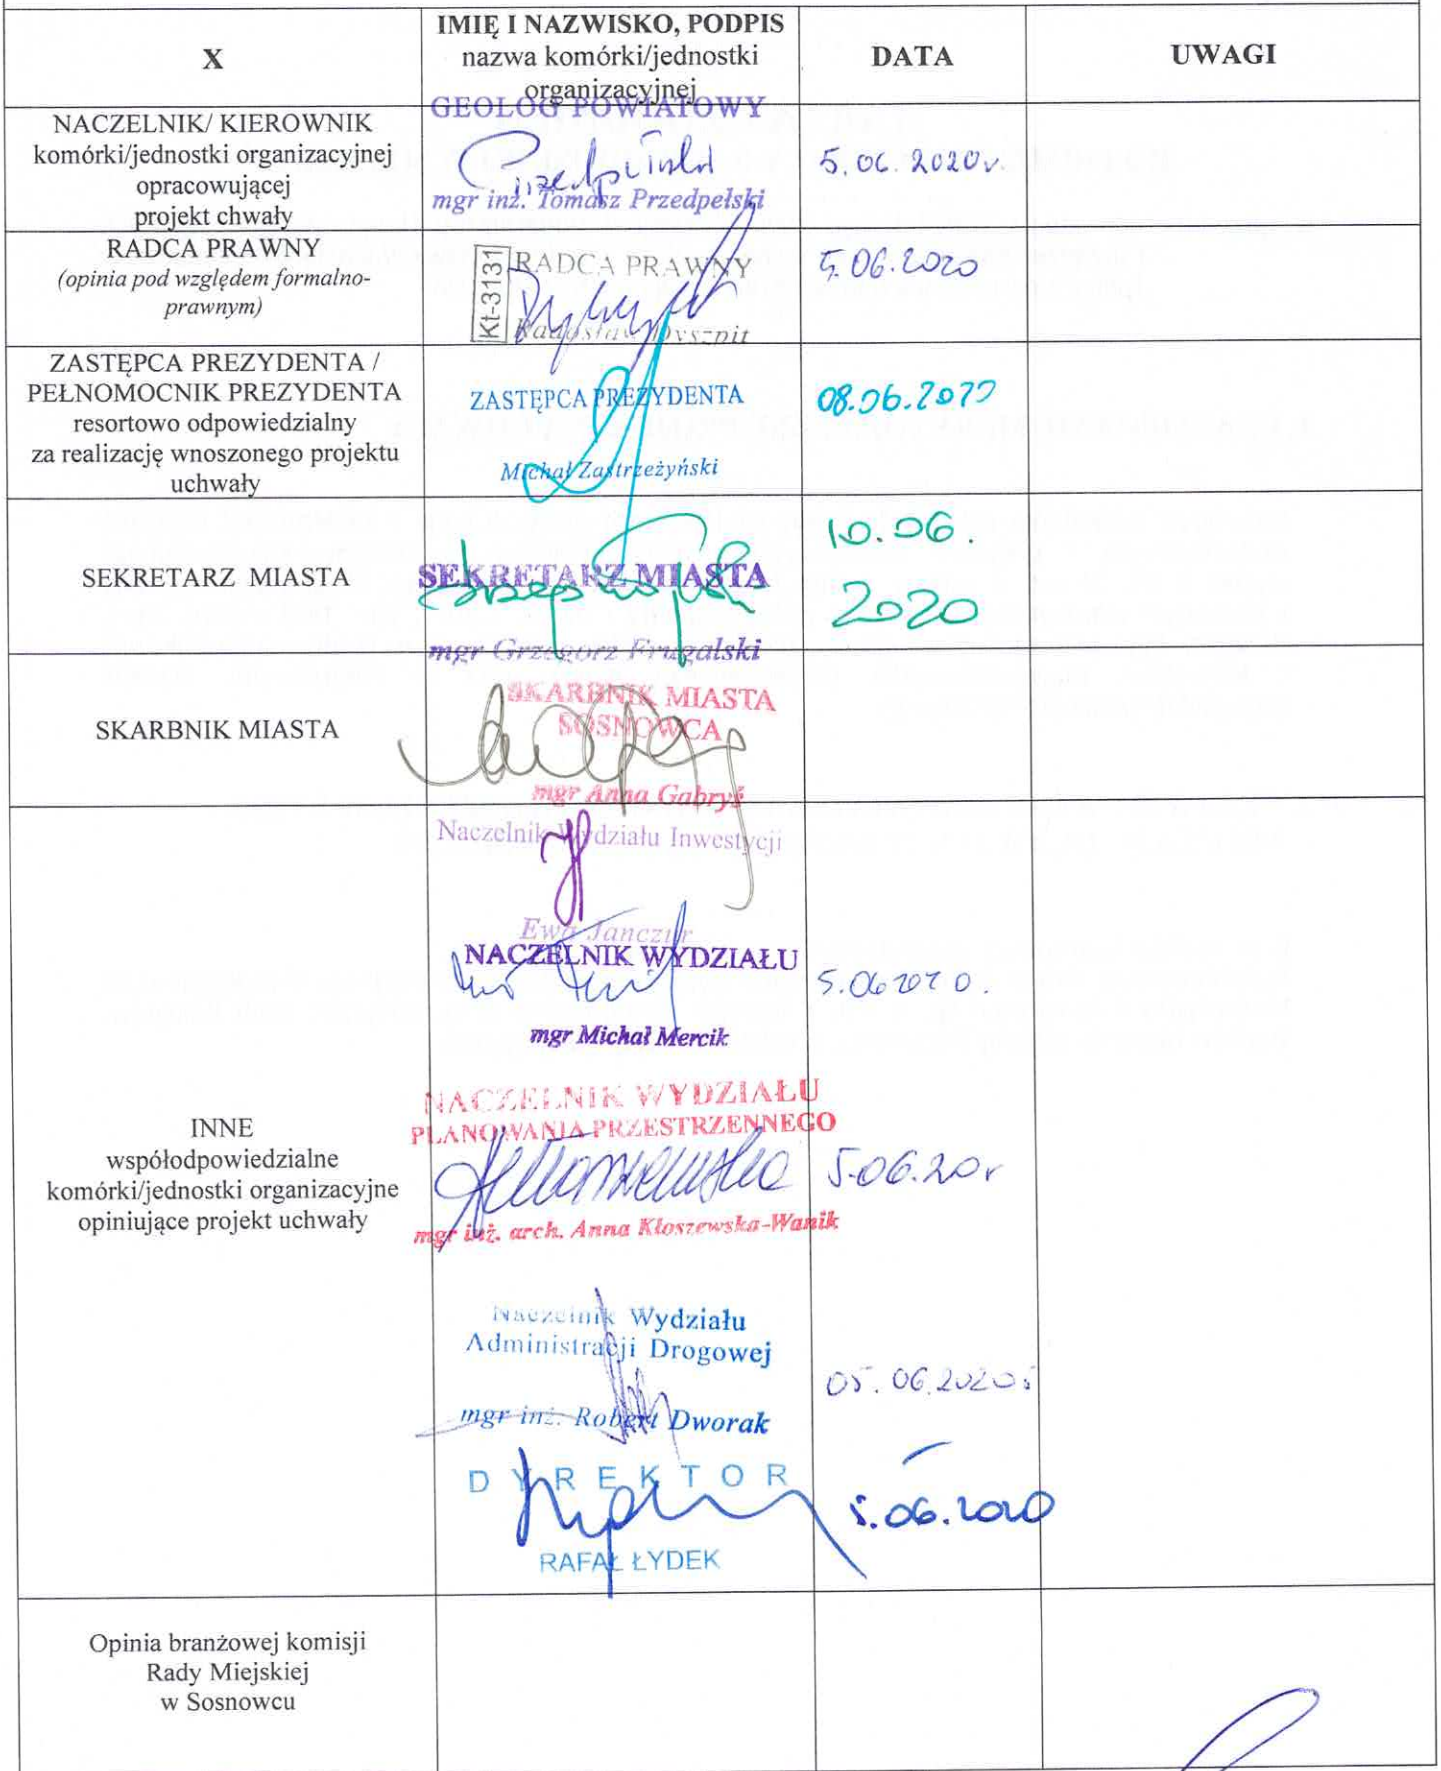 X
IMIĘ I NAZWISKO, PODPIS
nazwa komórki/jednostki
organizacyjnej
DATA
UWAGI
NACZELNIK/ KIEROWNIK
komórki/jednostki organizacyjnej
opracowującej
projekt chwały
GEOLOG POWIATOWY
mgr inż. Tomasz Przedpełski
5.06.2020r.
RADCA PRAWNY
(opinia pod względem formalno-
prawnym)
Kt-3131
RADCA PRAWNY
Radosław Dyszpit
5.06.2020
ZASTĘPCA PREZYDENTA /
PEŁNOMOCNIK PREZYDENTA
resortowo odpowiedzialny
za realizację wnoszonego projektu
uchwały
ZASTĘPCA PREZYDENTA
Michał Zastrzeżyński
08.06.2020
SEKRETARZ MIASTA
SEKRETARZ MIASTA
mgr Grzegorz Frugalski
10.06.
2020
SKARBNIK MIASTA
SKARBNIK MIASTA
SOSNOWCA
mgr Anna Gabryś
INNE
współodpowiedzialne
komórki/jednostki organizacyjne
opiniujące projekt uchwały
Naczelnik Wydziału Inwestycji
Ewa Janczur
NACZELNIK WYDZIAŁU
mgr Michał Mercik
5.06 2020.
NACZELNIK WYDZIAŁU
PLANOWANIA PRZESTRZENNEGO
mgr inż. arch. Anna Kłoszewska-Wanik
5.06.20r
Naczelnik Wydziału
Administracji Drogowej
mgr inż. Robert Dworak
05.06.2020r
DYREKTOR
RAFAŁ ŁYDEK
5.06.2020
Opinia branżowej komisji
Rady Miejskiej
w Sosnowcu